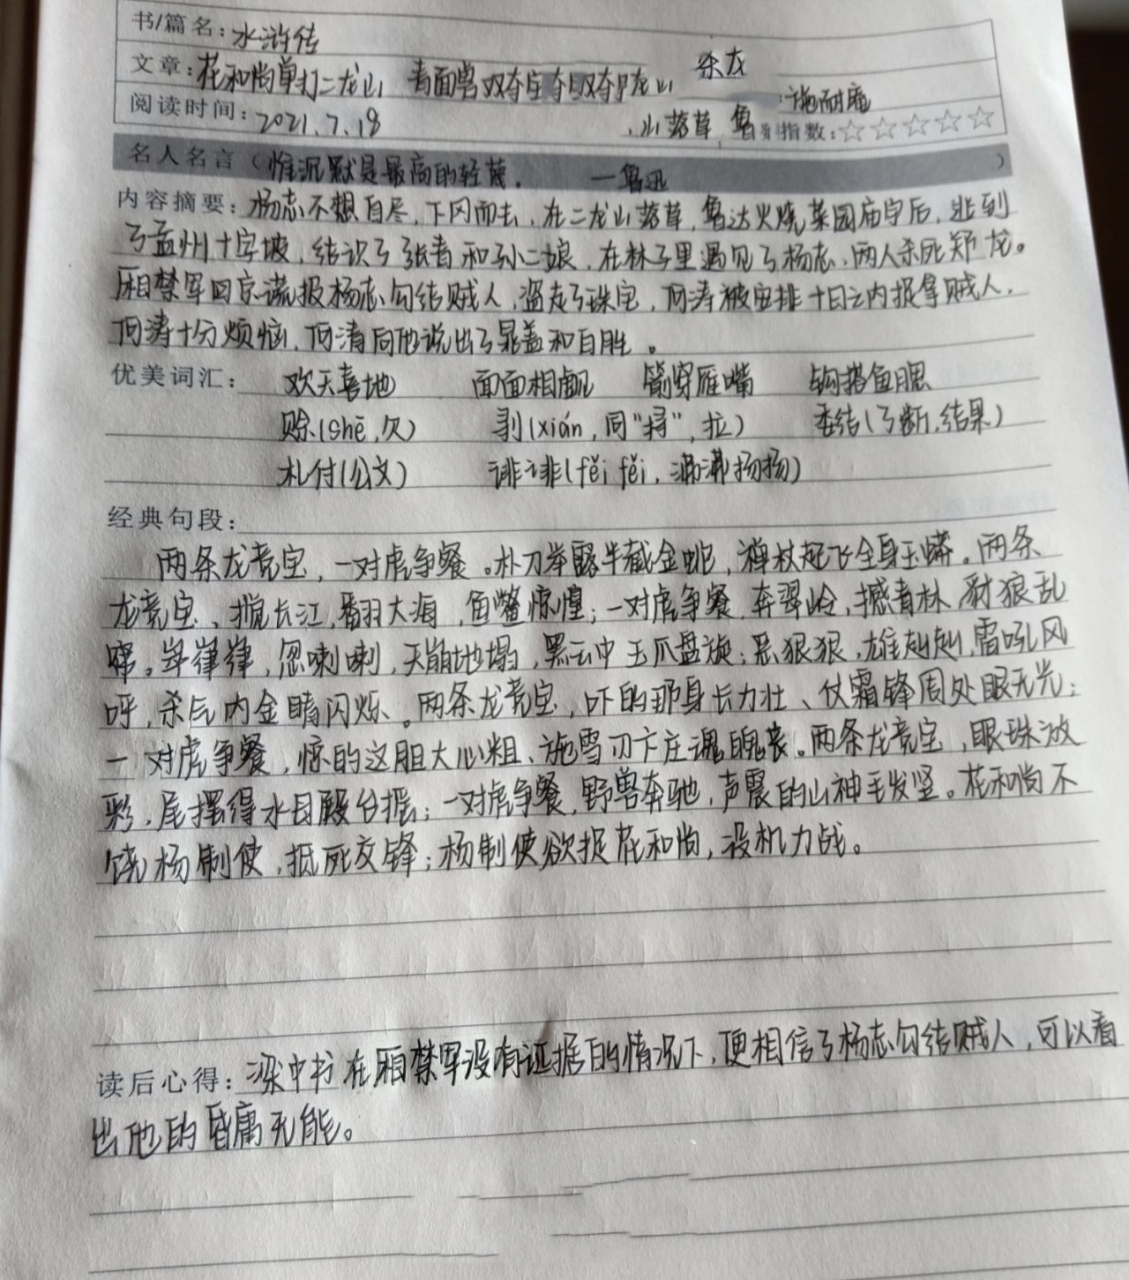 书/篇名：水浒传
文章：花和尚单打二龙山 青面兽双夺宝 杀龙
施耐庵
阅读时间：2021.7.18 山落草 鲁 指数：☆☆☆☆☆
名人名言（惟沉默是最高的轻蔑。 —鲁迅 ）
内容摘要：杨志不想自尽，下冈而去，在二龙山落草，鲁达火烧菜园庙宇后，逃到
了孟州十字坡，结识了张青和孙二娘，在林子里遇见了杨志，两人杀死郑龙。
厢禁军回京谎报杨志勾结贼人，盗走了珠宝，何涛被安排十日之内捉拿贼人，
何涛十分烦恼，何清向他说出了晁盖和白胜。
优美词汇： 欢天喜地 面面相觑 箭穿雁嘴 钩搭鱼腮
赊(shē,欠) (xián,同"挦",拉) 结(了断,结果)
札付(公文) 诽诽(fěi fěi,沸沸扬扬)
经典句段：
两条龙竞宝，一对虎争餐。朴刀举露半截金蛇，禅杖起飞全身玉蟒。两条
龙竞宝、搅长江，翻大海，鱼鳖惊惶；一对虎争餐，奔翠岭，撼青林，豺狼乱
窜。崒嵂嵂，忽喇喇，天崩地塌，黑云中玉爪盘旋；恶狠狠，雄赳赳，雷吼风
呼，杀气内金睛闪烁。两条龙竞宝，吓的那身长力壮、仗霜锋周处眼无光；
一对虎争餐，惊的这胆大心粗、施雪刃卞庄魂魄丧。两条龙竞宝，眼珠放
彩，尾摆得水母殿台摇；一对虎争餐，野兽奔驰，声震的山神毛发竖。花和尚不
饶杨制使，抵死交锋；杨制使欲捉花和尚，设机力战。
读后心得：梁中书在厢禁军没有证据的情况下，便相信了杨志勾结贼人，可以看
出他的昏庸无能。